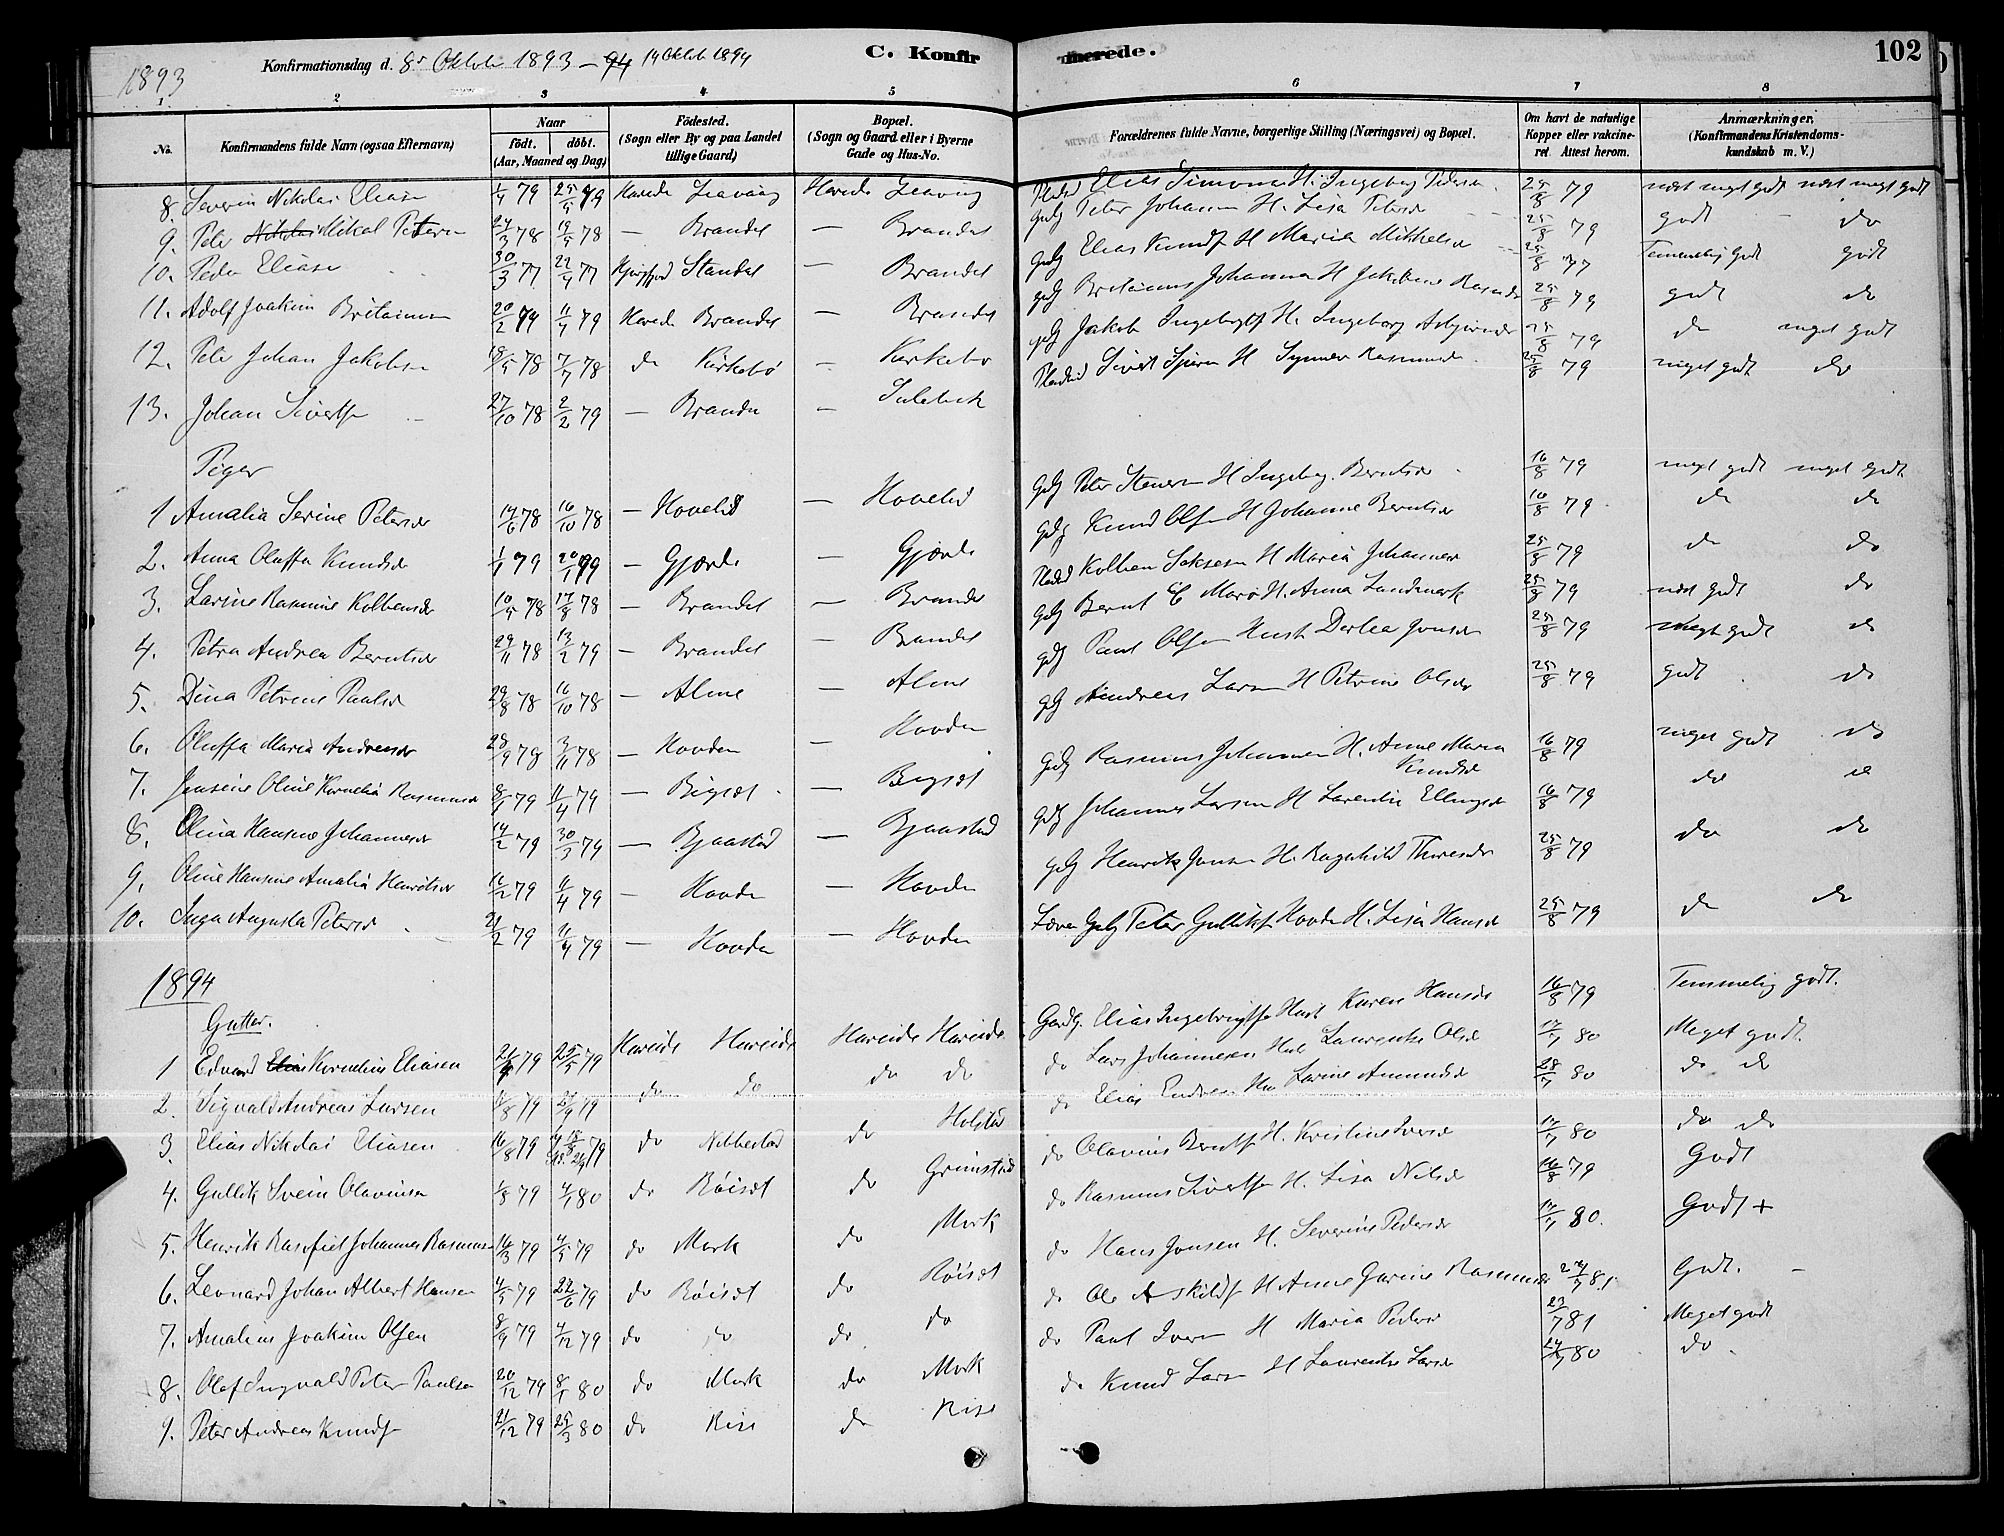 1893 Konfirmationsdag d. 8de Oktober 1893 – 94 14 Oktob 1894 C. Konfirmerede. 102
1 2 3 4 5 6 7 8
No. Konfirmandens fulde Navn (ogsaa Efternavn) Naar födt. döbt. (Aar, Maaned og Dag) Födested. (Sogn eller By og paa Landet tillige Gaard) Bopæl. (Sogn og Gaard eller i Byerne Gade og Hus-No. Forældrenes fulde Navne, borgerlige Stilling (Næringsvei) og Bopæl. Om havt de naturlige Kopper eller vakcineret. Attest herom. Anmærkninger, (Konfirmandens Kristendomskundskab m. V.)
8. Severin Nikolai Eliasen 1/4 79 25/5 79 Hareide Liavaag Hareide Liavaag Pladsd Elias Simonsen H. Ingeborg Pedersd 25/8 79 næst meget godt næst meget godt
9. Peter Nikolai Mikal Petersen 24/3 78 19/5 78 — Brandal — Brandal Gdbg Peter Johannesen H. Lisa Petersd 25/8 79 godt do
10. Peder Eliasen 30/3 77 22/4 77 Hjørgfjord Standal — Brandal gdbg Elias Knudsen H Maria Mikkelsd 25/8 77 Temmelig godt godt
11. Adolf Joakim Britanusen 20/2 79 11/4 79 Hareide Brandal — Brandal gdbg Britanus Johannesen H Jakobine Rasmusd 25/8 79 godt do
12. Peter Johan Jakobsen 18/5 78 7/7 78 do Kirkebø — Kirkebø gdbg Jakob Ingebrigtsen H. Ingeborg Asbjørnsd 25/8 79 do meget godt
13. Johan Sivertsen 27/10 78 2/2 79 — Brandal — Sulebak Pladsd Sivert H Synneve Rasmusd 25/8 79 meget godt do
Piger
1 Amalia Serine Petersd 14/6 78 16/10 78 — Hovelid — Hovelid Gdbg Peter Stenersen H Ingeborg Berntsd 16/8 79 meget godt meget godt
2. Anna Oluffa Knudsd 1/1 79 20/1 79 — Gjærde — Gjærde gdbg Knud Olsen H Johanne Berntsd 16/8 79 do do
3. Larine Rasmine Kolbensd 10/5 78 17/8 78 — Brandal — Brandal Pladsd Kolben H Maria Johannesd 25/8 79 do do
4. Petra Andrea Berntsd 29/11 78 13/2 79 — Brandal — Brandal gdbg Bernt C Marø H. Anna Landmark 25/8 79 næst godt do
5. Dina Petrine Paulsd 29/8 78 16/10 78 — Alme — Alme gdbg Paul Olsen Hust Dorthea Jonsd 25/8 79 meget godt do
6. Oluffa Maria Andreasd 28/9 78 3/11 78 — Hovden — Hovden gdbg Andreas Larsen H Petrine Olsd 25/8 79 godt do
7. Jensine Oline Kornelia Rasmusd 8/1 79 11/4 79 — Bigset — Bigset Gdbg Rasmus Johannesen H. Anne Maria Knudsd 16/8 79 meget godt do
8. Olina Hansine Johannesd 14/2 79 30/3 79 — Bjaastad — Bjaastad gdbg Johannes Larsen H Larentse Ellingsd 16/8 79 do do
9. Oline Hansine Amalia Henriksd 16/2 79 11/4 79 — Hovden — Hovden gdbg Henrik Jonsen H. Ragnhild Thoresd 25/8 79 do do
10. Inga Augusta Petersd 21/2 79 11/4 79 — Hovden — Hovden Gdbg Peter Gulliksen Hovde H. Lisa Hansd 25/8 79 do do
1894
Gutter.
1 Edvard Elias Kornelius Eliasen 21/4 79 25/5 79 Hareide Hareide Hareide Hareide Gardg. Elias Ingebrigtsen Hust Karen Hansd 16/8 79 Temmelig godt.
2. Sigvald Andreas Larsen 9/8 79 21/9 79 do do do do do Lars Johannesen Hust Laurentse Olsd 17/7 80 Meget godt.
3. Elias Nikolai Eliasen 16/8 79 do Nibbestad do Holstad do Elias Endresen Hu Larine Amundsd 28/7 80 do do
4. Gullik Svein Olavusen 1/8 79 4/1 80 do Röiset do Grimstad do Olavus Berntsen H. Kristine Iversd 17/7 80 do do
5. Henrik Johannes Rasmusen 16/3 79 4/5 79 do Mork do Mork do Rasmus Sivertsen H. Lisa Nilsd 16/8 79 Godt
6. Leonard Johan Albert Hansen 4/5 79 22/6 79 do Röiset do Röiset do Hans Jonsen H. Severine Pedersd 17/7 80. Godt +
7. Amalius Joakim Olsen 8/9 79 4/12 79 do do do do do Ole Askildsen H Anne Gurine Rasmusd 24/7 81 Godt. –
8. Olaf Ingvald Peter Paulsen 20/12 79 8/1 80 do Mork do Mork do Paul Iversen H Maria Pedersd 23/7 81 Meget godt
9. Peter Andreas Knudsen 21/12 79 25/3 80 do Rise do Rise do Knud Larsen H Laurentse Larsd 24/7 80 do.